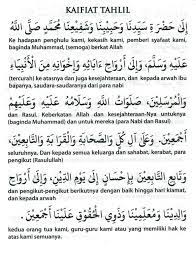 KAIFIAT TAHLIL
إِلَى حَضْرَةِ سَيِّدِنَا وَحَبِيْبِنَا وَشَفِيْعِنَا مُحَمَّدٍ صَلَّى اللَّهُ
Ke hadapan penghulu kami, kekasih kami, pemberi syafaat kami,
baginda Muhammad, (semoga) berkat Allah
عَلَيْهِ وَسَلَّمَ، وَإِلَى أَرْوَاحِ آبَائِهِ وَإِخْوَانِهِ مِنَ الْأَنْبِيَاءِ
(tercurah) ke atasnya dan juga kesejahteraan, dan kepada arwah ibu
bapanya, saudara-saudaranya dari para nabi
وَالْمُرْسَلِيْنَ، صَلَوَاتُ اللَّهِ وَسَلَامُهُ عَلَيْهِ وَعَلَيْهِمْ
dan Rasul. Keberkatan Allah dan kesejahteraan-Nya untuknya
(baginda Muhammad) dan untuk mereka (para nabi dan Rasul)
أَجْمَعِيْنَ. وَعَلَى آلِ كُلٍّ وَالصَّحَابَةِ وَالْقَرَابَةِ وَالتَّابِعِيْنَ،
seluruhnya. Dan kepada semua keluarga dan sahabat, kerabat, para
pengikut (Rasulullah)
وَتَابِعِ التَّابِعِيْنَ بِإِحْسَانٍ إِلَى يَوْمِ الدِّيْنِ، وَإِلَى أَرْوَاحِ
dan pengikut-pengikut berikutnya dengan baik hingga hari kiamat,
dan kepada arwah
وَالِدِيْنَا وَمُعَلِّمِيْنَا وَذَوِي الْحُقُوْقِ عَلَيْنَا أَجْمَعِيْنَ.
kedua orang tua kami, guru-guru kami atau yang memiliki hak ke
atas kami semuanya.